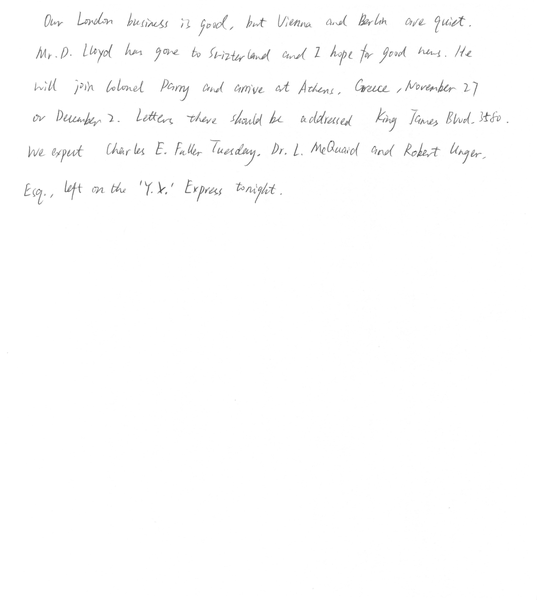 Our London business is good, but Vienna and Berlin are quiet.
Mr. D. Lloyd has gone to Switzerland and I hope for good news. He
will join Colonel Parry and arrive at Athens, Greece, November 27
or December 2. Letters there should be addressed King James Blvd. 3580.
We expect Charles E. Fuller Tuesday. Dr. L. McQuaid and Robert Unger,
Esq., left on the 'Y.X.' Express tonight.